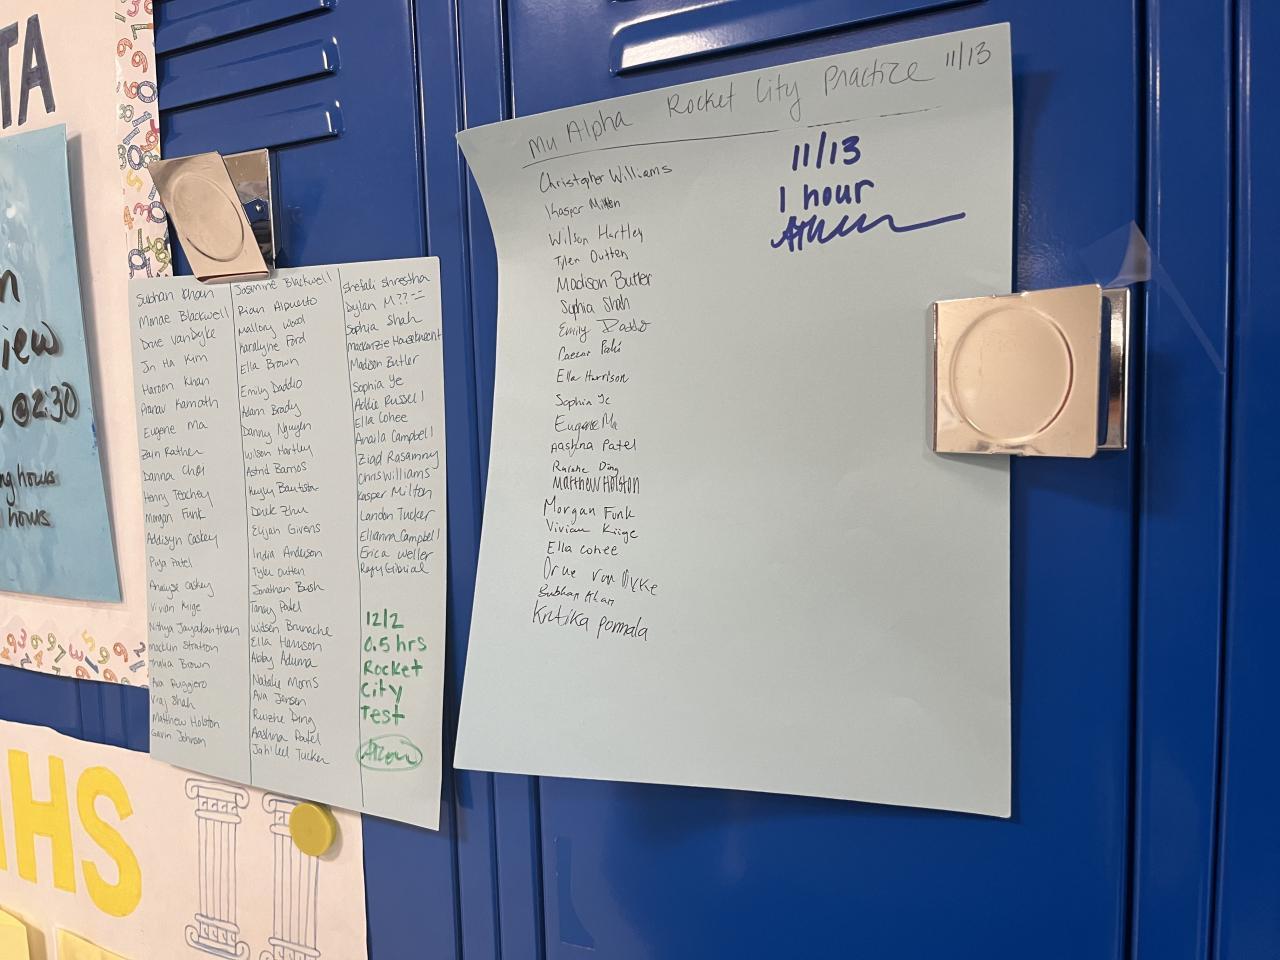 TA
n
iew
@2:30
ng hours
hours
HS
Subhan Khan
Monae Blackwell
Drue VanDyke
Jn Ha Kim
Haroon Khan
Pranav Kamath
Eugene Ma
Zain Rather
Danna Choi
Henry Teachey
Morgan Funk
Addisyn Caskey
Piya Patel
Analyse Caskey
Vivian Kiige
Nithya Jayakanthan
Macklin Stratton
Thalia Brown
Ava Ruggiero
Viraj Shah
Matthew Holston
Gavin Johnson
Jasmine Blackwell
Rian Alpuerto
Mallory Wood
Karalyne Ford
Ella Brown
Emily Daddio
Adam Brady
Danny Nguyen
Wilson Hartley
Astrid Barrios
Kuyu Bautista
Derek Zhu
Elijah Givens
India Anderson
Tyler Outten
Jonathan Bush
Tanay Patel
Widsen Brunache
Ella Harrison
Abby Aduma
Natalie Morris
Ava Jensen
Ruizhe Ding
Aashna Patel
Jahkeel Tucker
Shefali Shrestha
Dylan M??
Sophia Shah
Mackenzie Houseknecht
Madison Butler
Sophia Ye
Addie Russell
Ella Cohee
Anaila Campbell
Ziad Rasamny
Chris Williams
Kasper Milton
Landon Tucker
Elianna Campbell
Erica Weller
Rafy Gibrial
12/2
0.5 hrs
Rocket
City
Test
Mu Alpha Rocket City Practice 11/13
11/13
1 hour
Christopher Williams
Kasper Milton
Wilson Hartley
Tyler Outten
Madison Butler
Sophia Shah
Emily Daddio
Ella Harrison
Sophia Ye
Eugene Ma
Aashna Patel
Ruizhe Ding
Matthew Holston
Morgan Funk
Vivian Kiige
Ella Cohee
Drue Van Dyke
Subhan Khan
Kritika Pormala